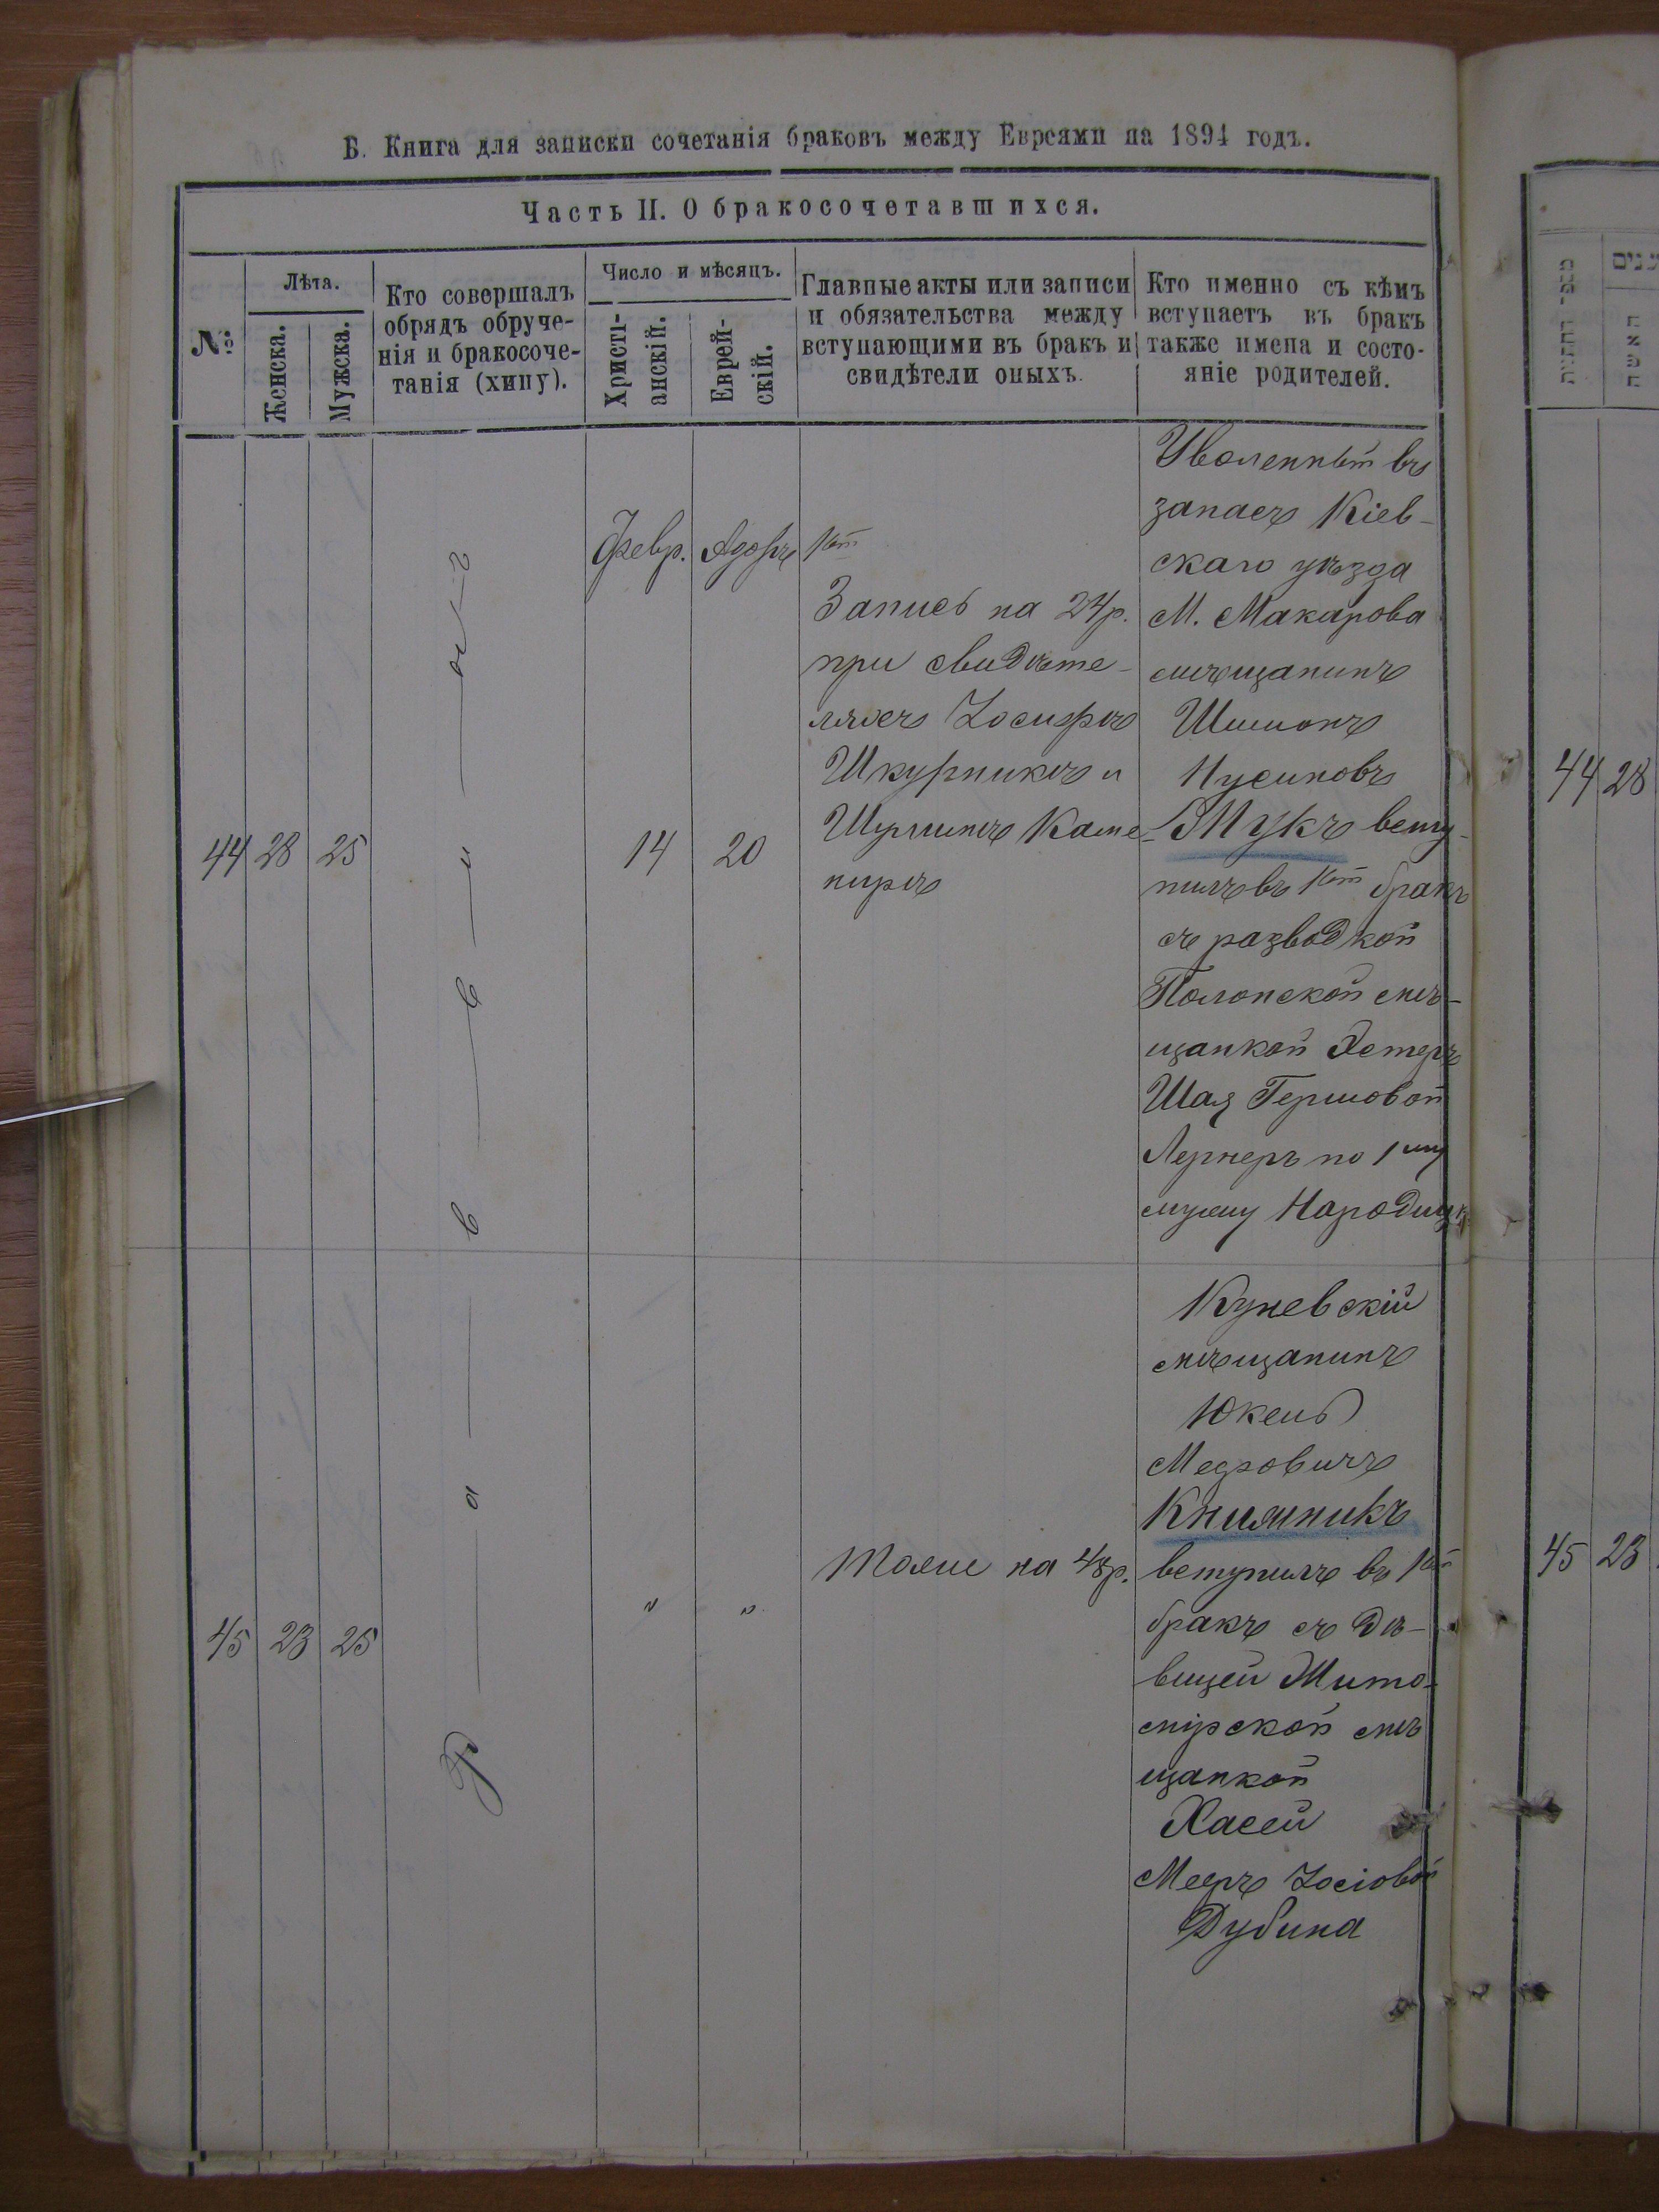 Б. Книга для записки сочетанія браковъ между Евреями на 1894 годъ.
Часть II. О бракосочетавшихся.
№
Лѣта.
Женска.
Мужска.
Кто совершалъ
обрядъ обруче-
нія и бракосоче-
танія (хипу).
Число и мѣсяцъ.
Христі-
анскій.
Еврей-
скій.
Главные акты или записи
и обязательства между
вступающими въ бракъ и
свидѣтели оныхъ.
Кто именно съ кѣмъ
вступаетъ въ бракъ
также имена и состо-
яніе родителей.
Р а в в и н
44 28 25
Февр. Адоръ
14 20
Запись на 24 р.
при свидѣте-
ляхъ Іосифѣ
Шкурникѣ и
Шулимѣ Каме-
нирѣ
Уволенный въ
запасъ Кіев-
скаго уѣзда
М. Макарова
мѣщанинъ
Шимонъ
Нусиновъ
Жукъ всту-
пилъ въ 1ый бракъ
съ разводкой
Полонской мѣ-
щанкой Эстеръ
Шая Гершовой
Лернеръ по 1му
мужу Народицк
45 23 25
" "
Тоже на 48 р.
Куневскій
мѣщанинъ
Юкель
Мееровичъ
Книжникъ
вступилъ въ 1ый
бракъ съ дѣ-
вицей Жито-
мірской мѣ
щанкой
Хасей
Мееръ Іосіовой
Дубина
44 28
45 23